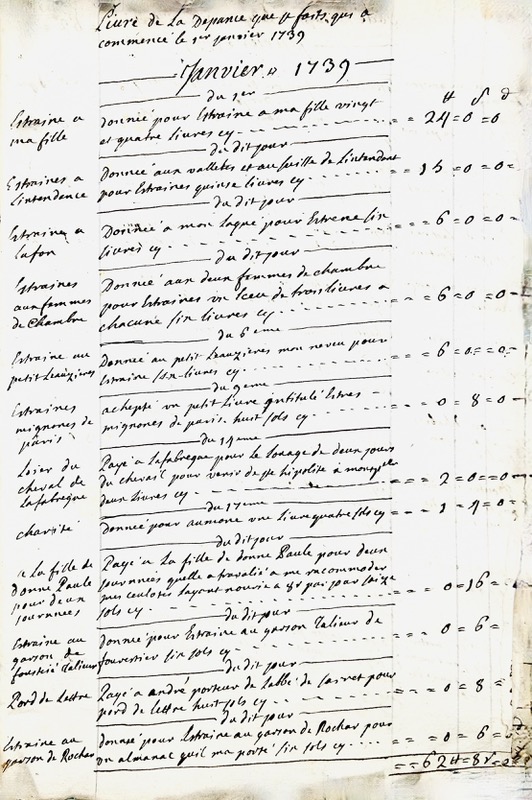 Livre de La Depance que je faits, qui a
commencé le 1er janvier 1739
Janvier 1739
du 1er
# s d
Estraine a
ma fille
donnée pour Estraine a ma fille vingt
et quatre livres cy - - - 24=0=0
du dit jour
Estraines a
Lintendance
Donnée aux valletes et au suisse de Lintendant
pour Estraines quinse livres cy - - - 15=0=0
du dit jour
Estraine a
lafon
Donnée a mon laqué pour Estrene six
livres cy - - - 6=0=0
du dit jour
Estraines
aux femmes
de chambre
Donnée aux deux femmes de chambre
pour Estraines un Sceu de trois livres a
chacune six livres cy - - - 6=0=0
du 6eme
Estraine au
petit Leauzieres
Donnée au petit Leauzieres mon neveu pour
Estraine six livres cy - - - 6=0=0
du 9eme
Estraines
mignones de
paris
achepté un petit Livre intitulé Estres
mignones de paris huit sols cy - - - 0=8=0
du 14eme
Loier du
cheval de
Lafabregue
Payé a Lafabregue pour le Louage de deux jours
du cheval pour venir de St hipolite a montpelier
deux livres cy - - - 2=0=0
du 17eme
charité
donnée pour aumone une Livre quatre sols cy 1=4=0
du dit jour
a La fille de
donne Paule
pour deux
journnées
Payé a La fille de donne Paule pour deux
journnées quelle a travalié a me racommoder
mes culotes layant nourie a 8s par jour saize
sols cy - - - 0=16=
du dit jour
Estraine au
garson de
foustié Talieur
donnée pour Estraine au garson Talieur de
fouvertier six sols cy - - - 0=6=
du dit jour
Pord de Lettre
Payé a andré porteur de Labbé de pour
pord de lettre huit sols cy - - - 0=8=
du dit jour
Estraine au
garson de Rochar
donnée pour Estraine au garson de Rochar pour
un almanac quil ma porté six sols cy - - - 0=6=0
62#=8s=0